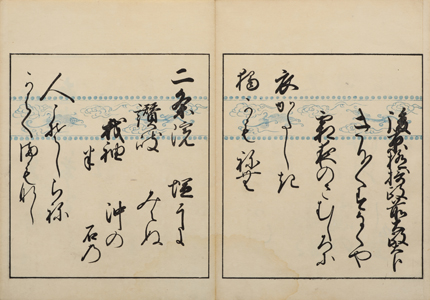 後京極摂政前太政大臣
きり〱すなくや
霜夜のさむしろに
衣かたしき
独かもねむ
二条院
讃岐
我袖
は
みえぬ
沖の
石乃
人こそしらね
かはくまもなし